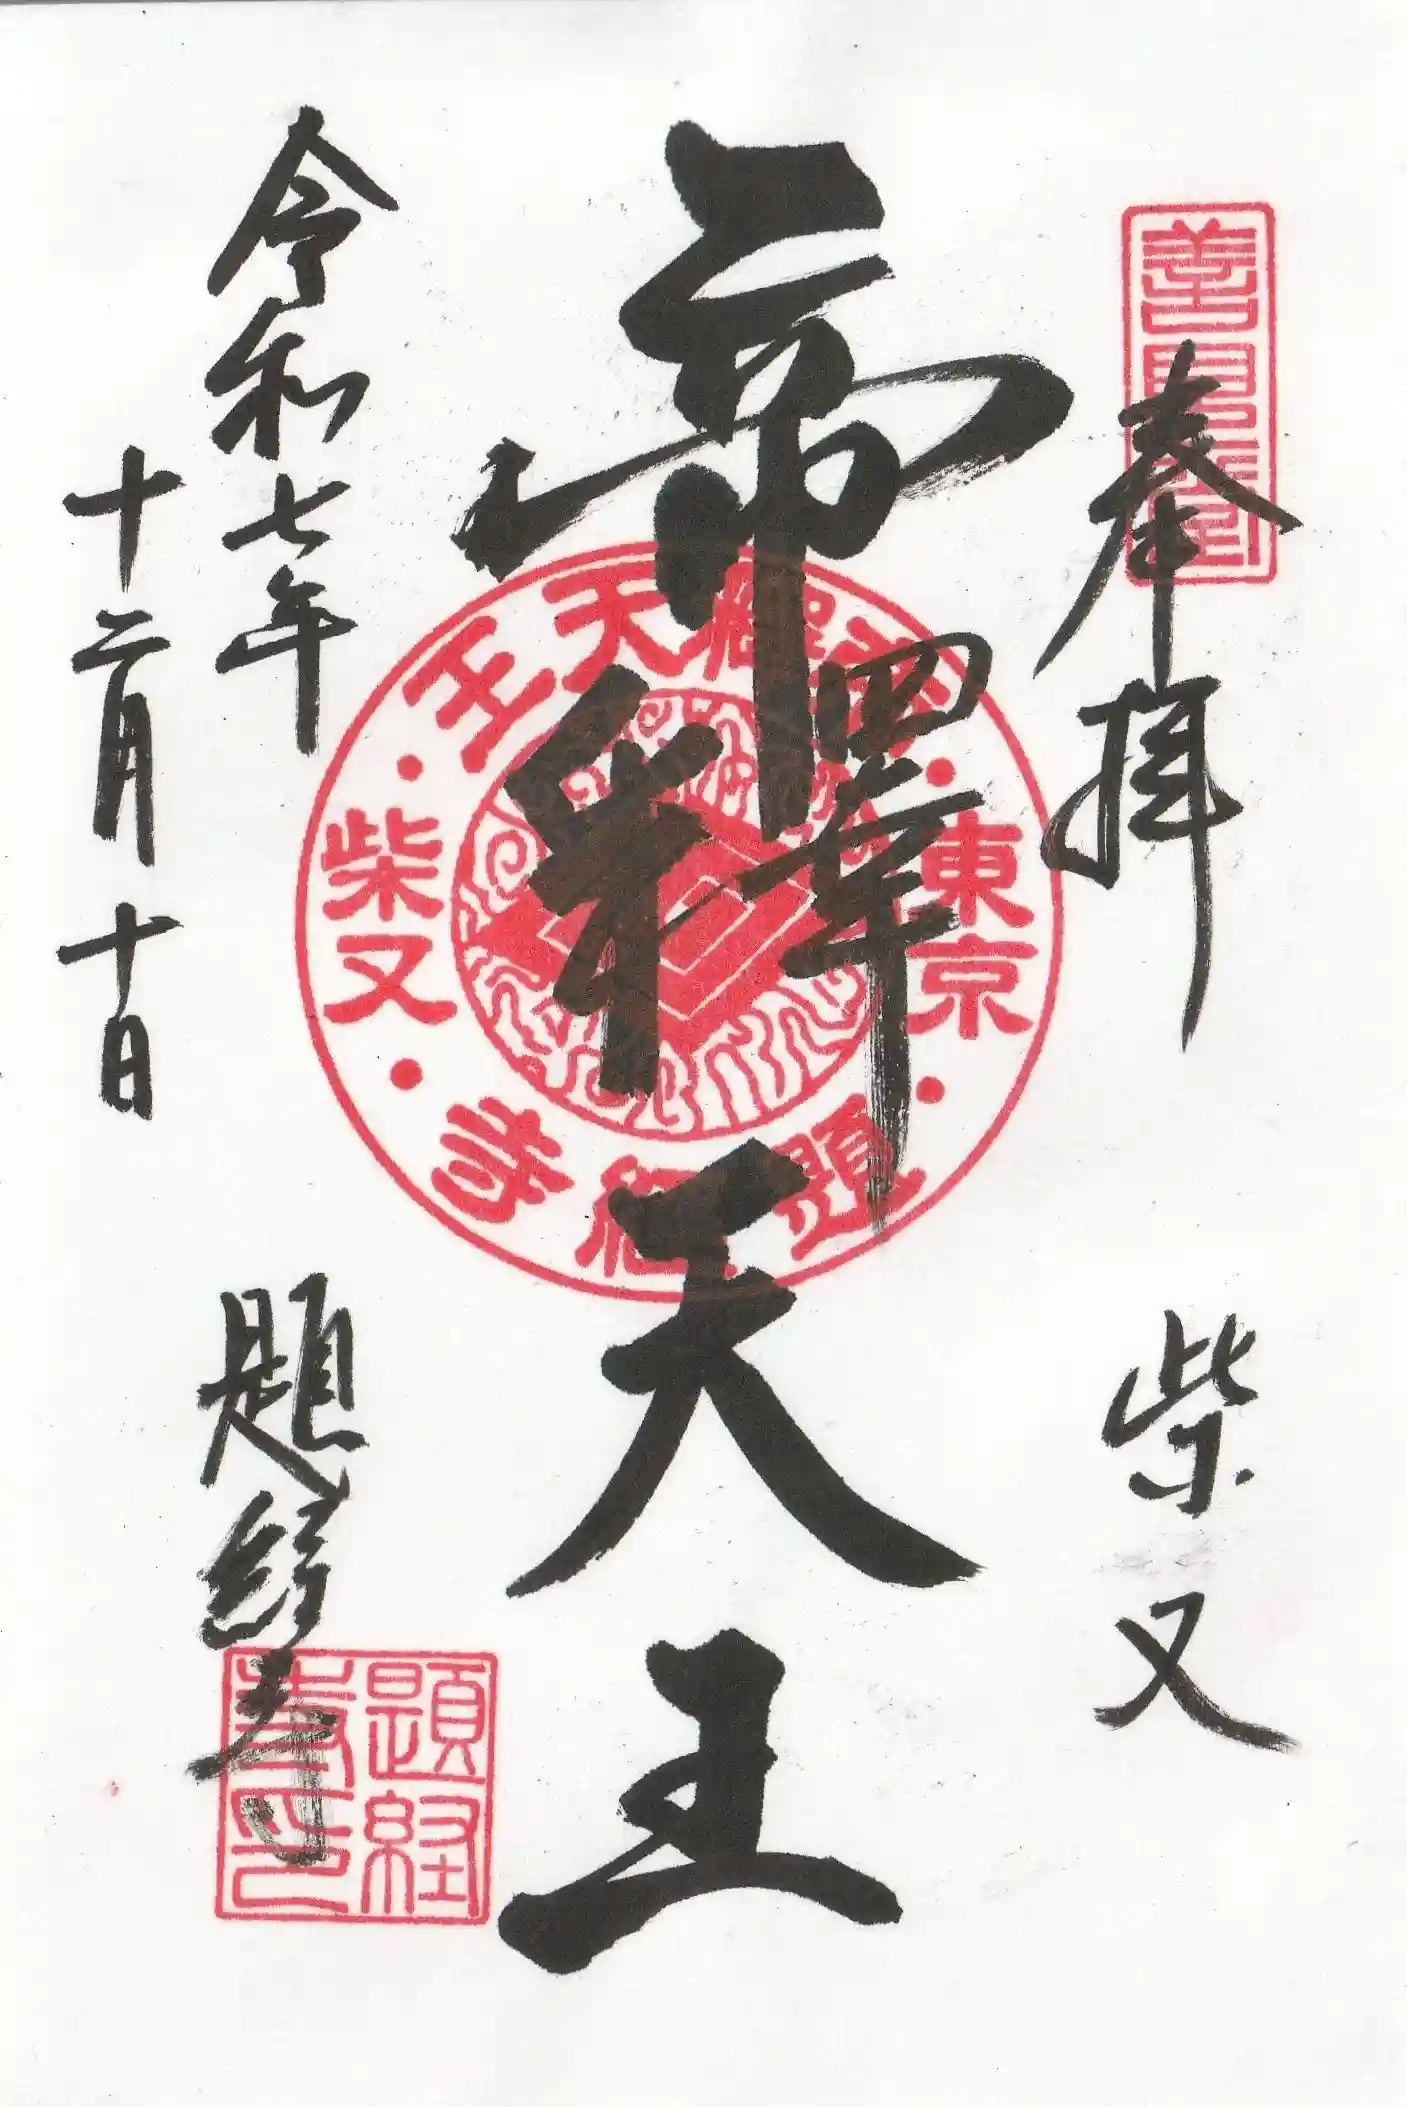 奉拝
柴又
帝釋天王
帝釋天王
東京
柴又
題経寺
令和七年
十二月十日
題経寺
題経寺印